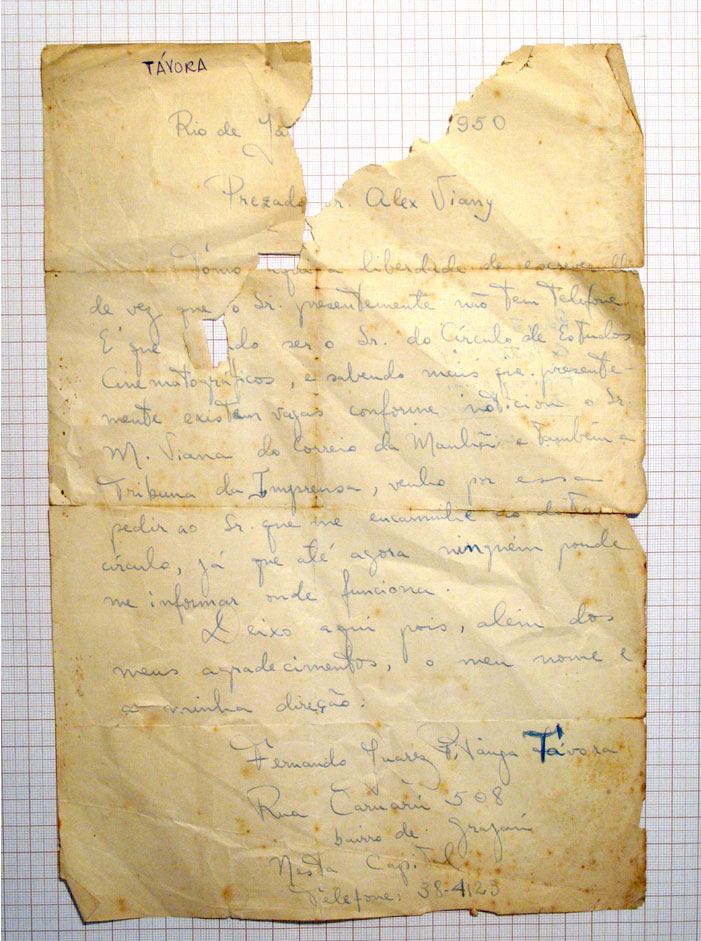 TÁVORA
Rio de Ja 950
Prezado r. Alex Viany
Tômo a liberdade de escrever
de vez que o Sr. presentemente não tem telefone
É que do ser o Sr. do Círculo de Estudos
Cinematográficos, e sabendo mais que presente-
mente existem vagas conforme noticiou o Sr.
M. Viana do Correio da Manhã e também a
Tribuna da Imprensa, venho por essa
pedir ao Sr. que me encaminhe ao
círculo, já que até agora ninguém poude
me informar onde funciona.
Deixo aqui pois, além dos
meus agradecimentos, o meu nome e
a minha direção:
Fernando Juarez Pitanga Távora
Rua Caruarú 508
bairro de Grajaú
Nesta Capital
Telefone: 38-4123